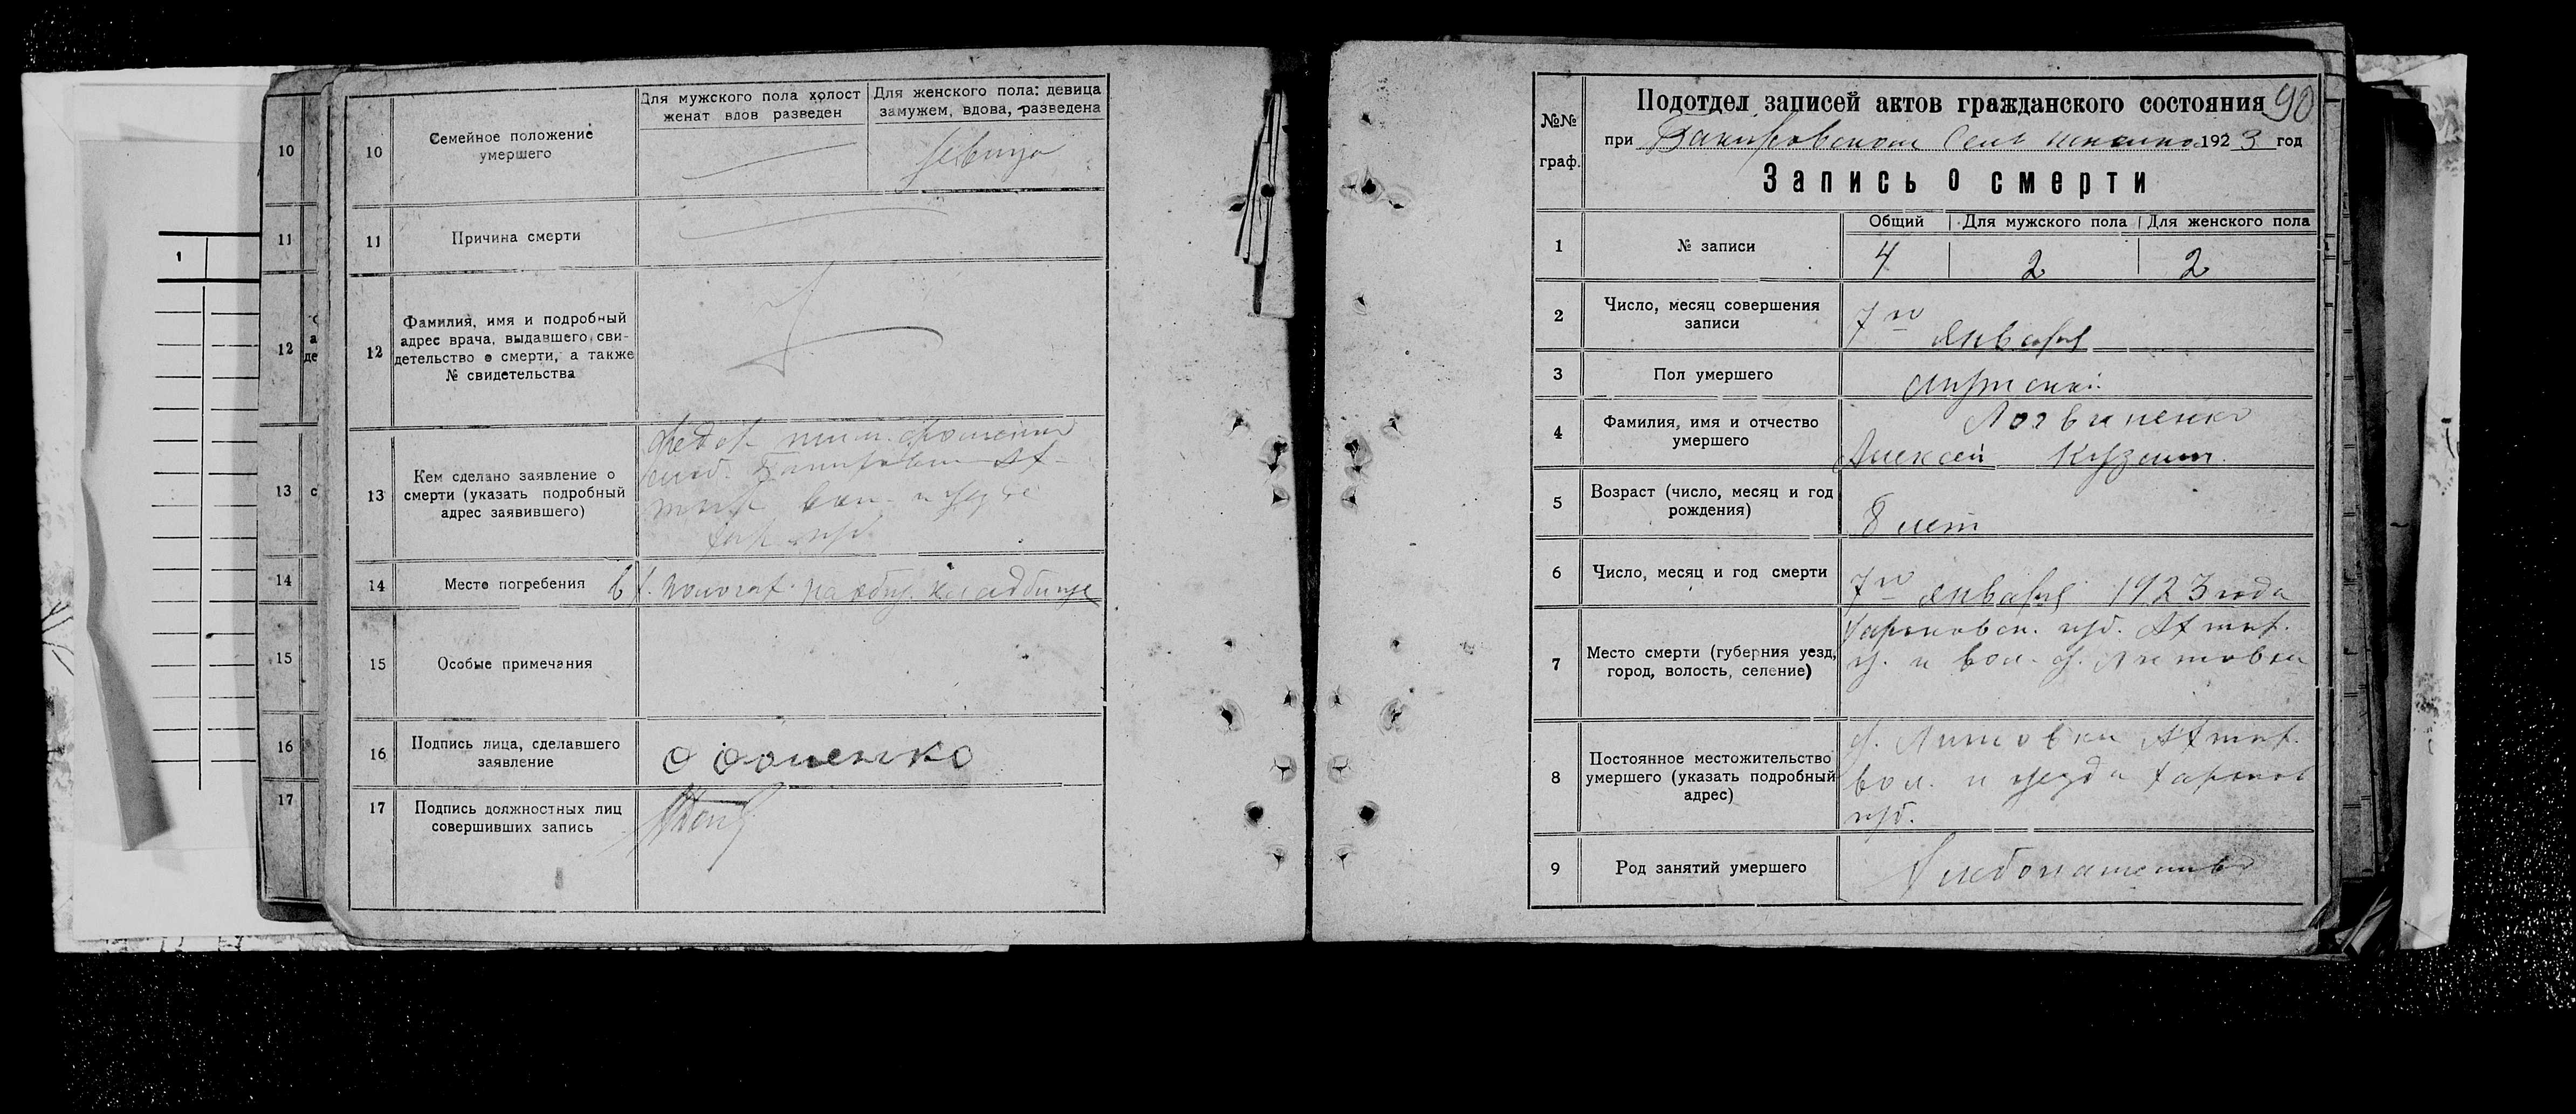 10
11
12
13
14
15
16
17
1
10
Семейное положение
умершего
Для мужского пола холост
женат вдов разведен
Для женского пола: девица
замужем, вдова, разведена
девица
11
Причина смерти
12
Фамилия, имя и подробный
адрес врача, выдавшего сви-
детельство о смерти, а также
№ свидетельства
13
Кем сделано заявление о
смерти (указать подробный
адрес заявившего)
Федор
вол. и уезда
Хар. губ.
14
Место погребения
в х. на общ. кладбище
15
Особые примечания
16
Подпись лица, сделавшего
заявление
17
Подпись должностных лиц
совершивших запись
90
№№
граф.
Подотдел записей актов гражданского состояния
при Бакировском Сель 1923 год
Запись о смерти
1
№ записи
Общий
Для мужского пола
Для женского пола
4
2
2
2
Число, месяц совершения
записи
7го Января
3
Пол умершего
мужской
4
Фамилия, имя и отчество
умершего
Логвиненко
Алексей Кузьм.
5
Возраст (число, месяц и год
рождения)
8 лет
6
Число, месяц и год смерти
7го Января 1923 года
7
Место смерти (губерния уезд,
город, волость, селение)
Харьковск. губ. Ахтыр.
у. и вол. х. Литовка
8
Постоянное местожительство
умершего (указать подробный
адрес)
х. Литовка Ахтыр.
вол. и уезда Харьков
губ.
9
Род занятий умершего
Хлебопашество